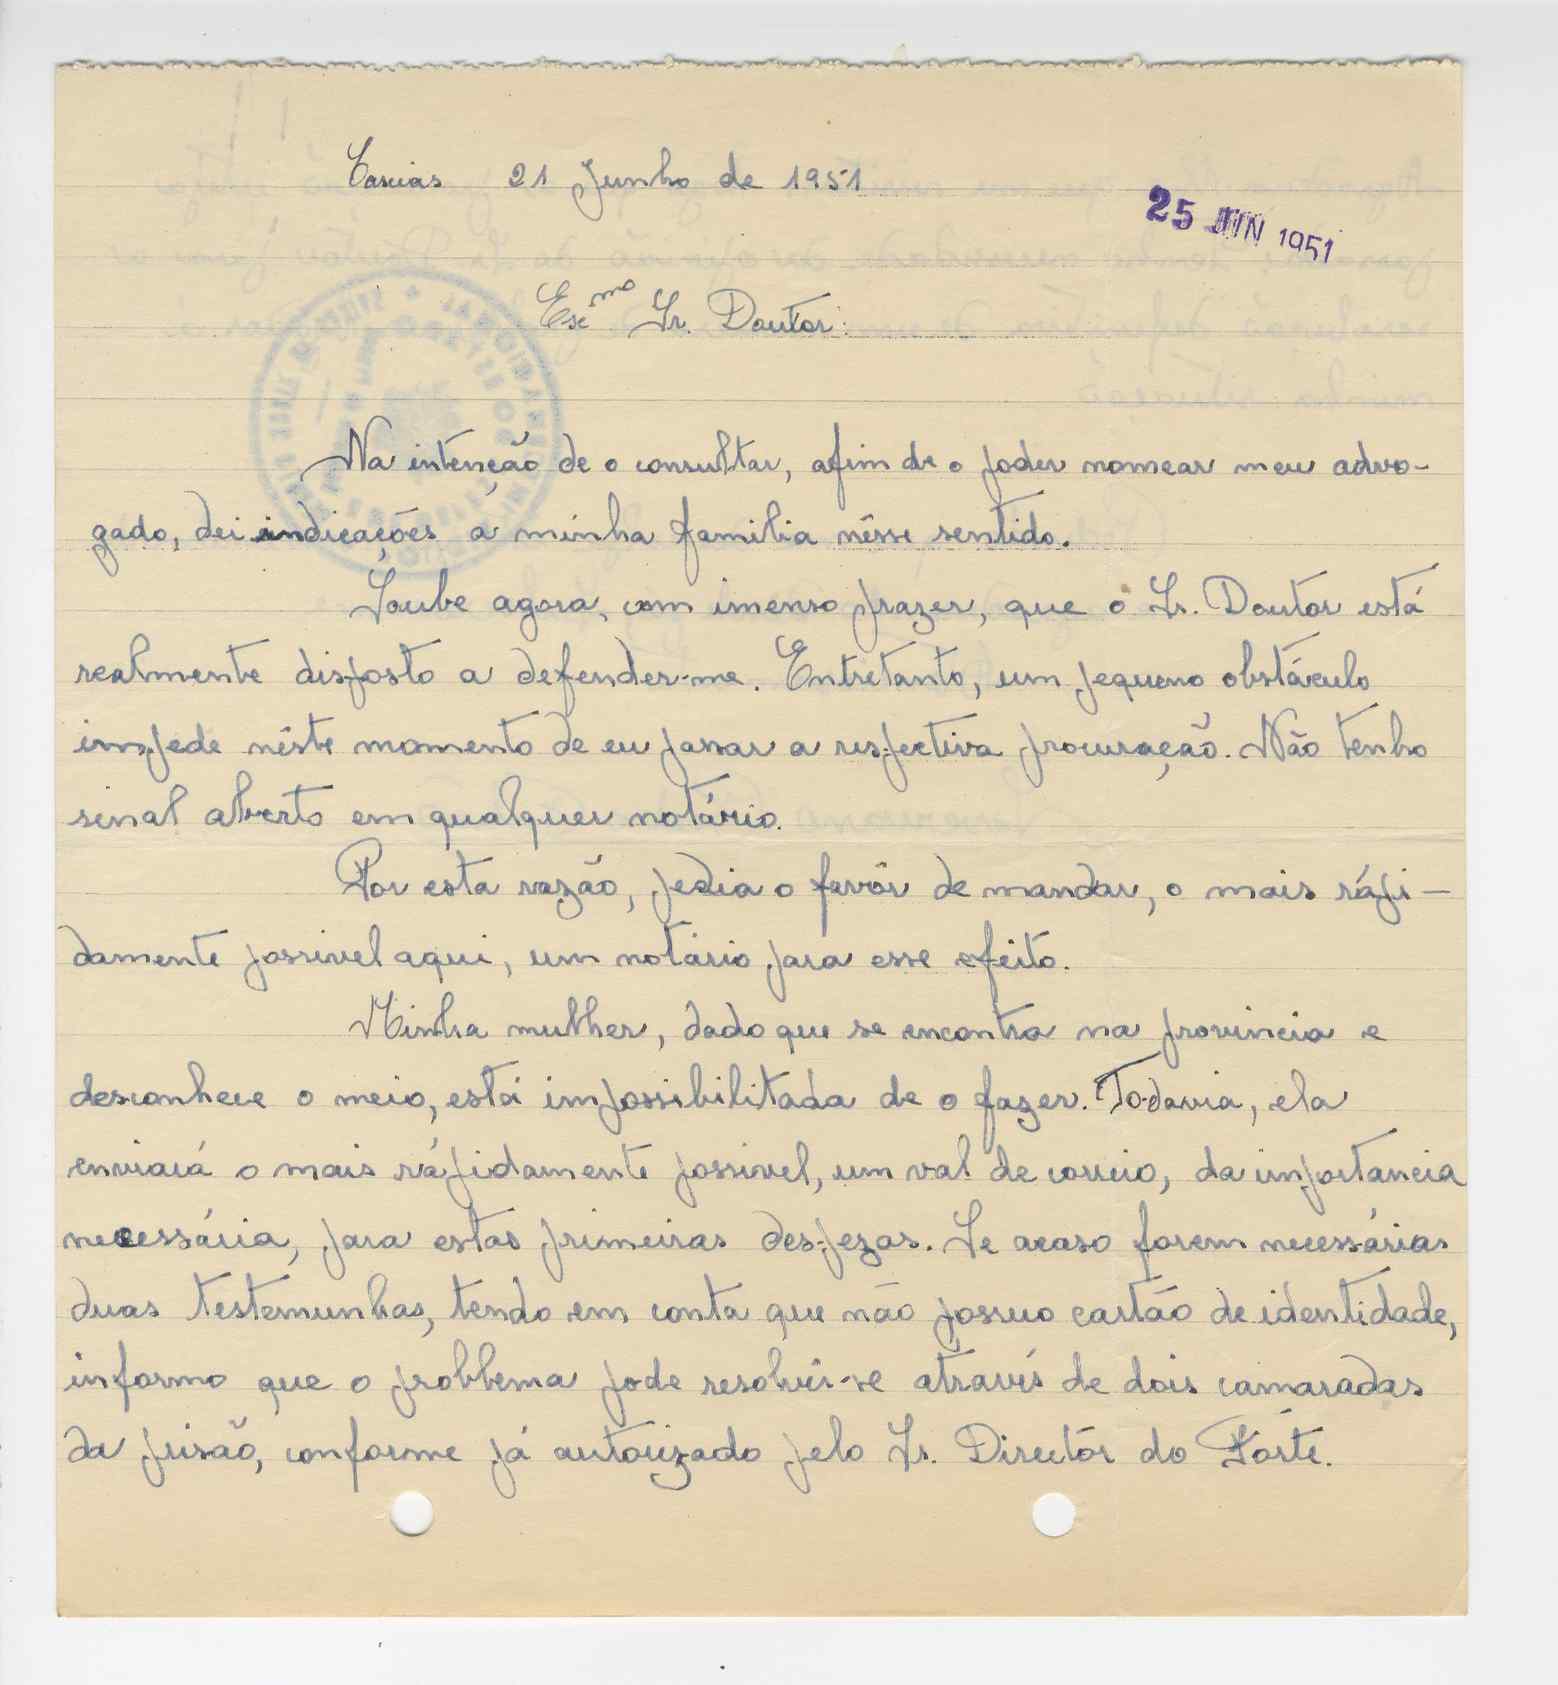 Caxias 21 Junho de 1951
25 JUN 1951
Exᵐᵒ Sr. Doutor:
Na intenção de o consultar, afim de o poder nomear meu advo-
gado, dei indicações á minha familia nêsse sentido.
Soube agora, com imenso prazer, que o Sr. Doutor está
realmente disposto a defender-me. Entretanto, um pequeno obstáculo
impede nêste momento de eu passar a respectiva procuração. Não tenho
sinal aberto em qualquer notário.
Por esta razão, pedia o favôr de mandar, o mais rápi-
damente possivel aqui, um notário para esse efeito.
Minha mulher, dado que se encontra na provincia e
desconhece o meio, está impossibilitada de o fazer. Todavia, ela
enviará o mais rápidamente possivel, um val de correio, da importancia
necessária, para estas primeiras despezas. Se acaso forem necessárias
duas testemunhas, tendo em conta que não possuo cartão de identidade,
informo que o problema pode resolver-se através de dois camaradas
da prisão, conforme já autorizado pelo Sr. Directôr do Fórte.